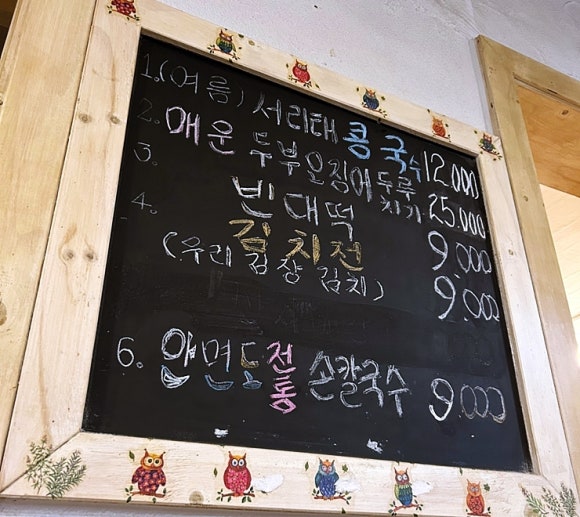 1.(여름) 서리태 콩국수 12.000
2. 매운 두부 오징어 두루치기 25.000
3. 빈대떡 9.000
4. 김치전 9.000
(우리 김장 김치)
6. 안면도 전통 손칼국수 9.000